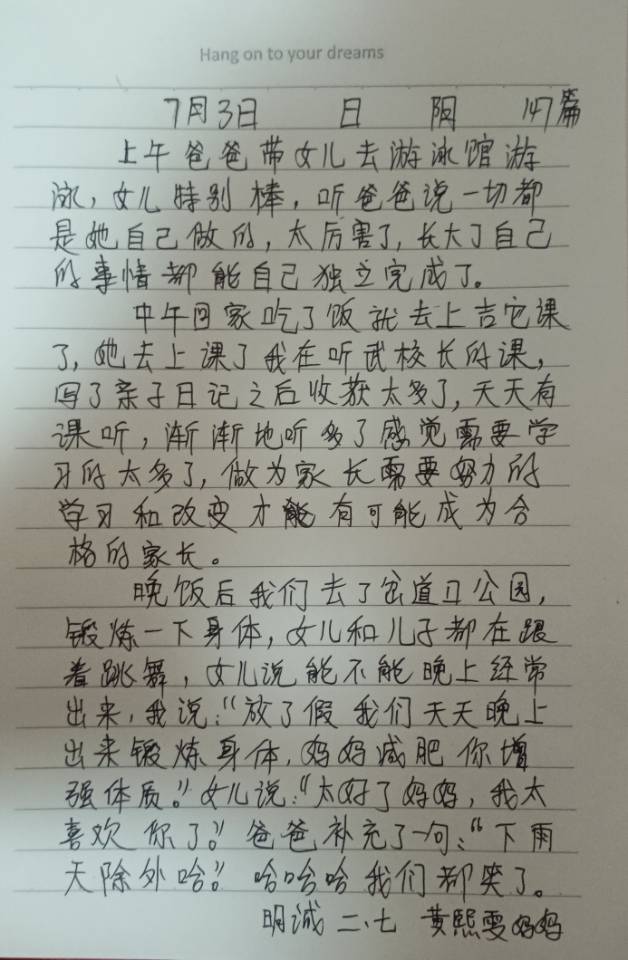 Hang on to your dreams
7月3日 日 阴 147篇
上午爸爸带女儿去游泳馆游
泳，女儿特别棒，听爸爸说一切都
是她自己做的，太厉害了，长大了自己
的事情都能自己独立完成了。
中午回家吃了饭就去上吉它课
了，她去上课了我在听武校长的课，
写了亲子日记之后收获太多了，天天有
课听，渐渐地听多了感觉需要学
习的太多了，做为家长需要努力的
学习和改变才能有可能成为合
格的家长。
晚饭后我们去了岔道口公园，
锻炼一下身体，女儿和儿子都在跟
着跳舞，女儿说能不能晚上经常
出来，我说：“放了假我们天天晚上
出来锻炼身体，妈妈减肥你增
强体质。”女儿说：“太好了妈妈，我太
喜欢你了。”爸爸补充了一句：“下雨
天除外哈。”哈哈哈我们都笑了。
明诚 二、七 黄熙雯妈妈